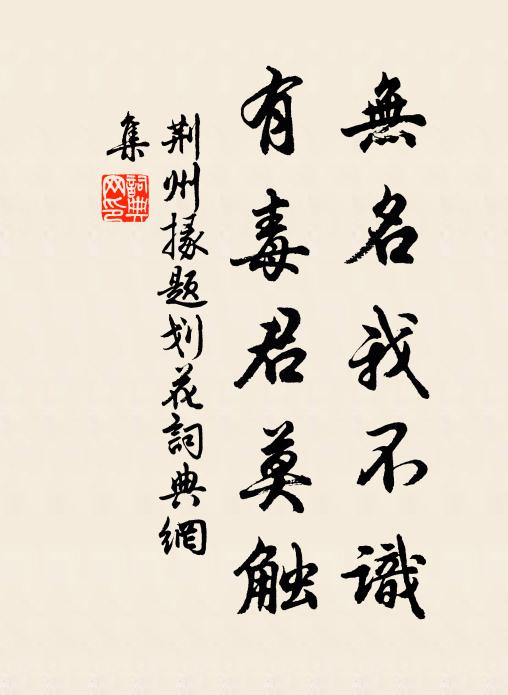 無名我不識
有毒君莫触
荆州掾题划花詞典網
集
詞典網印